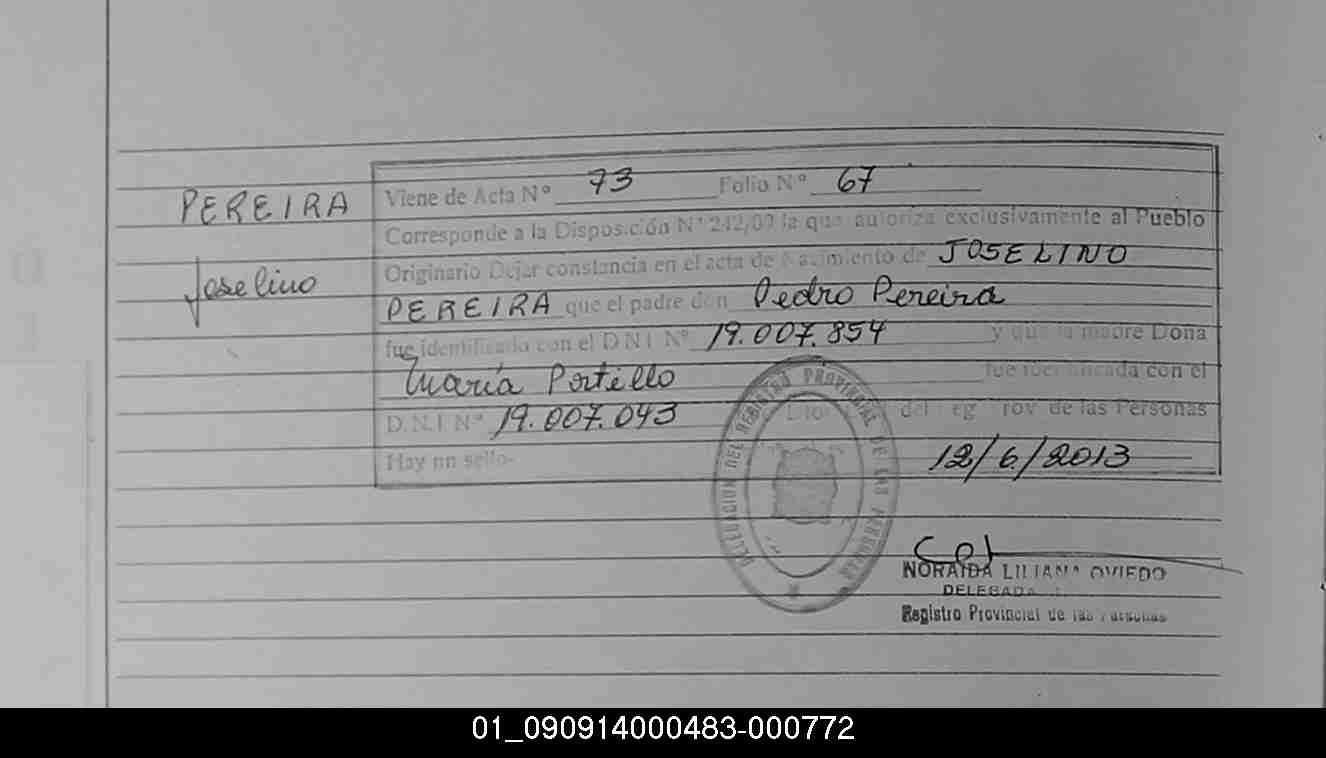 PEREIRA
Joselino
Viene de Acta N° 73 Folio N° 67
Corresponde a la Disposición N° 242/09 la que autoriza exclusivamente al Pueblo
Originario Dejar constancia en el acta de Nacimiento de JOSELINO
PEREIRA que el padre don Pedro Pereira
fue identificado con el D N I N° 19.007.854 y que la madre Doña
María Portillo fue identificada con el
D.N.I N° 19.007.043 del Reg Prov de las Personas
Hay un sello-
12/6/2013
DELEGACION DEL REGISTRO PROVINCIAL DE LAS PERSONAS
NORAIDA LILIANA OVIEDO
DELEGADA
Registro Provincial de las Personas
01_090914000483-000772